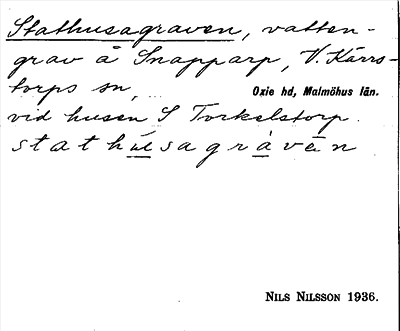 Stathusagraven, vatten-
grav å Snapparp, V. Kärrs-
torps sn, Oxie hd, Malmöhus län.
vid husen S Torkelstorp.
stathúsagràvän
NILS NILSSON 1936.